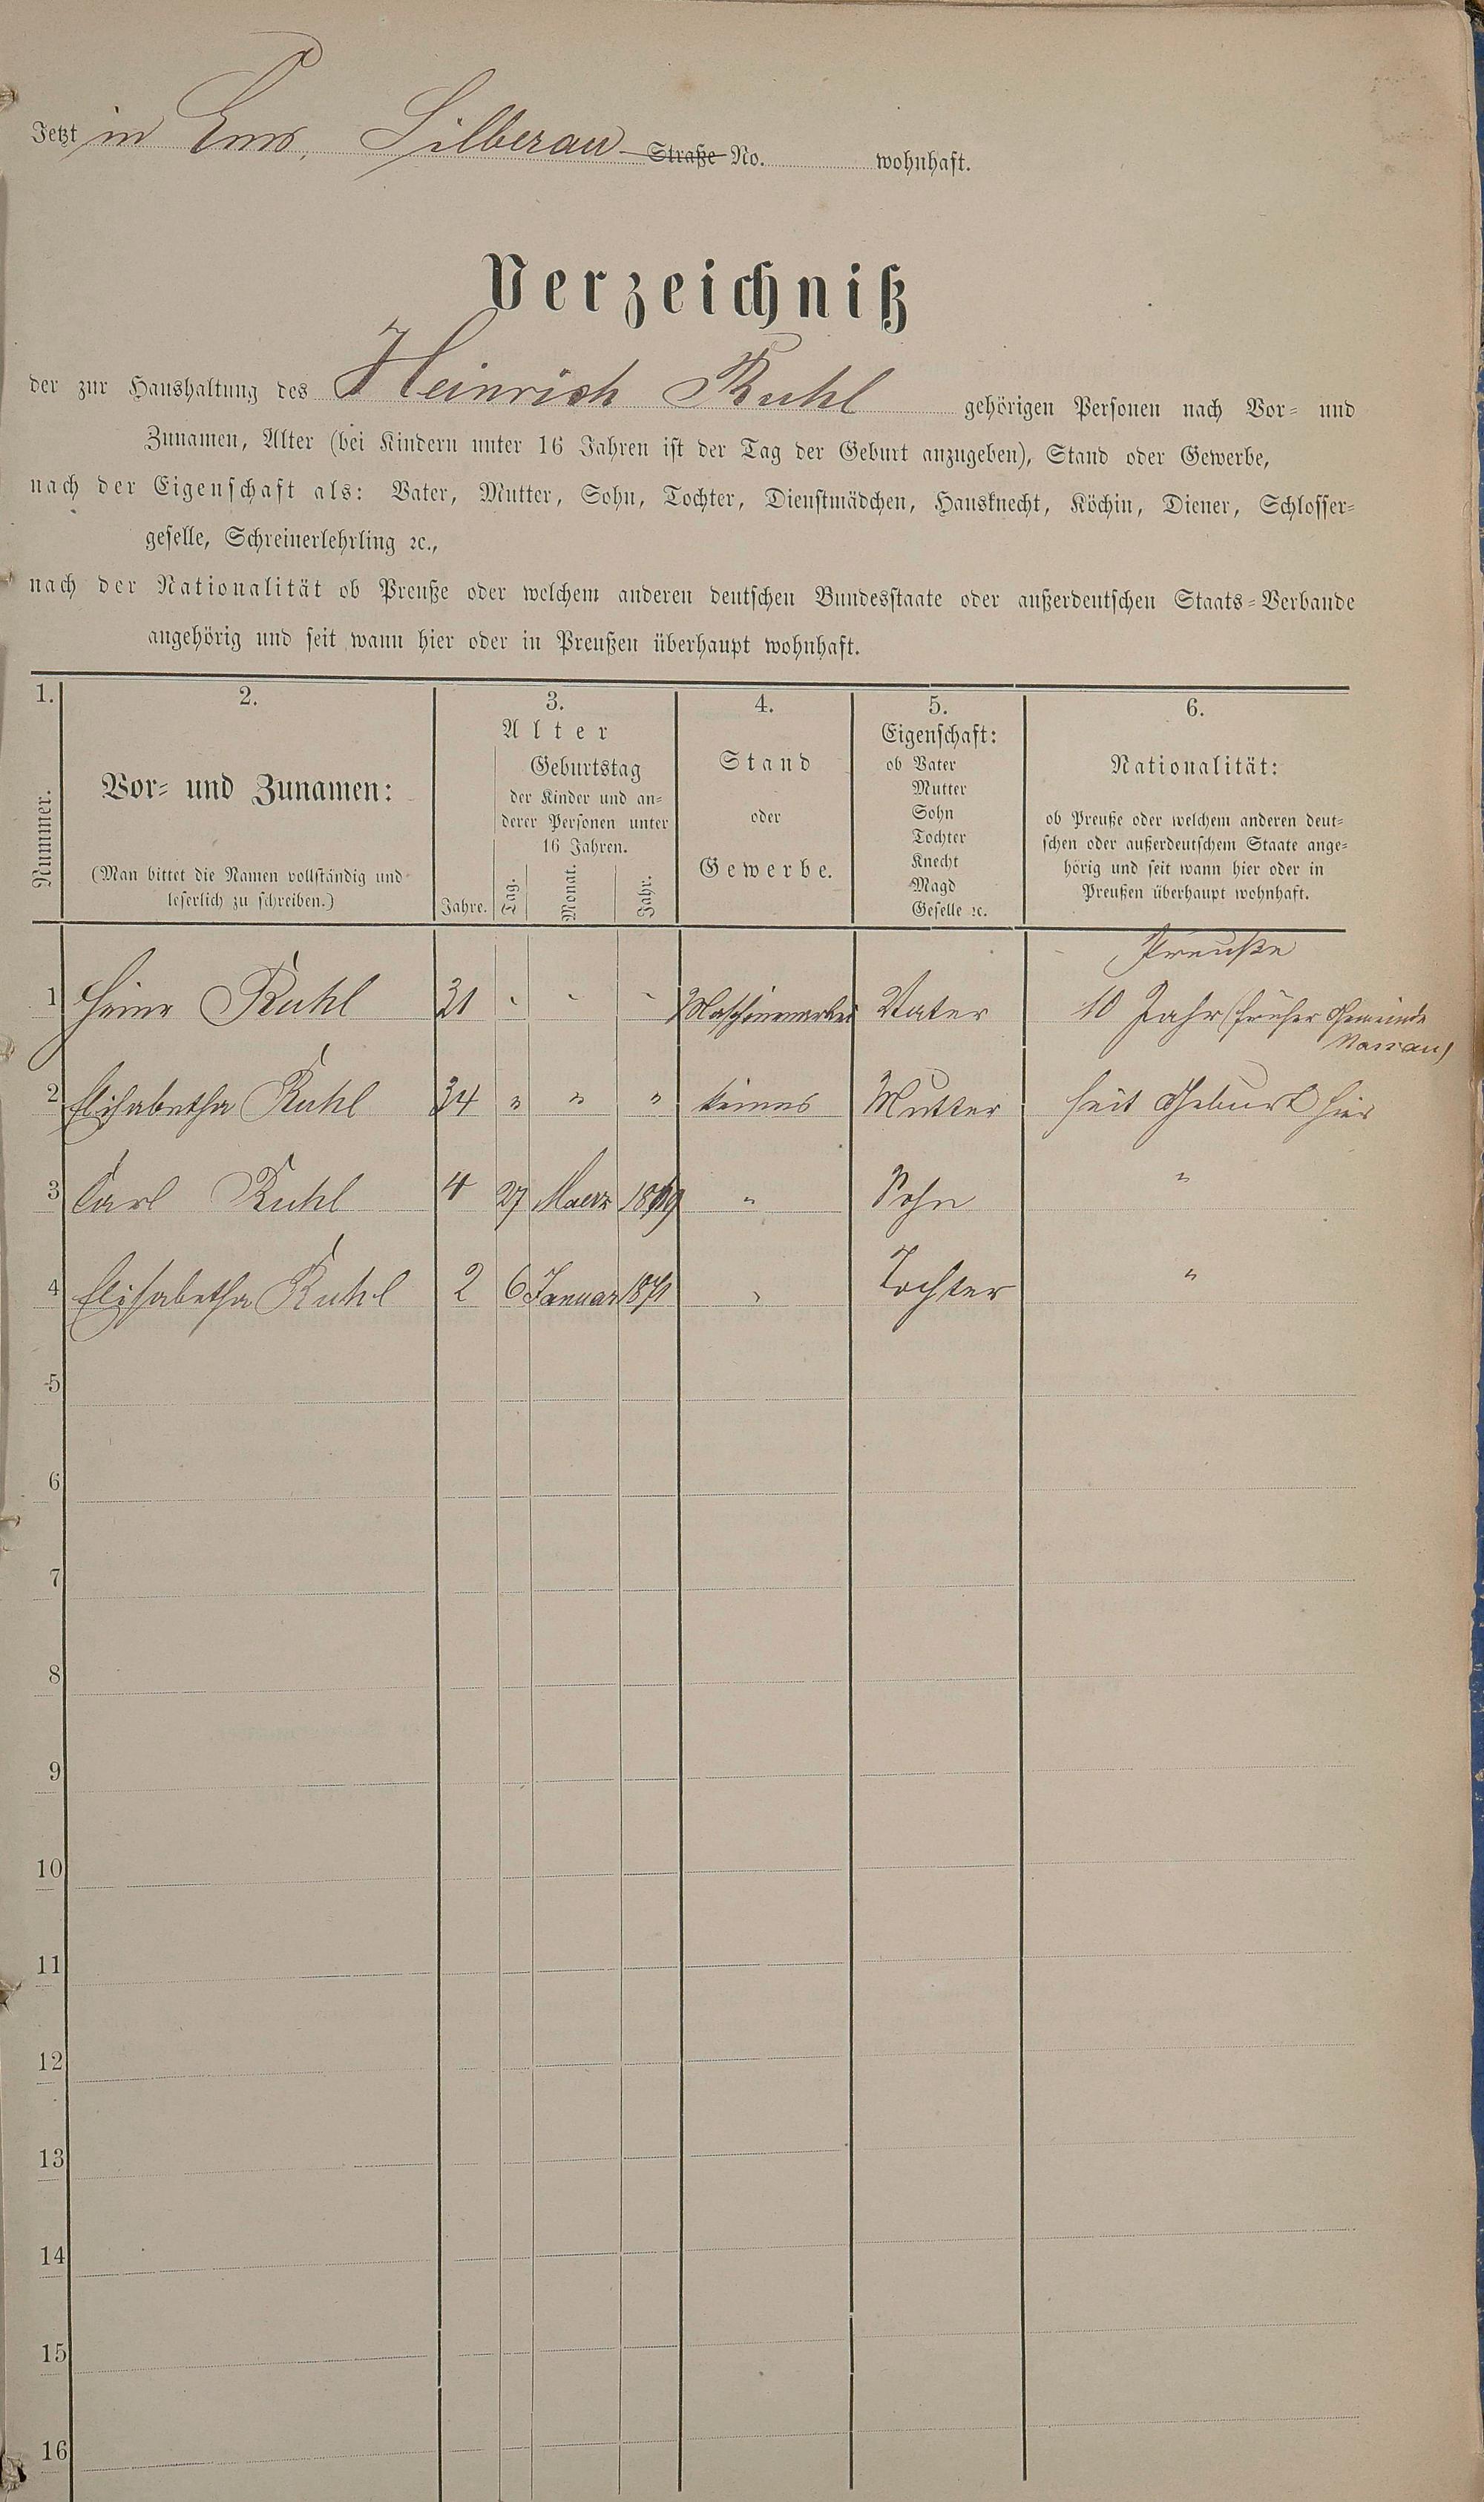 Jetzt in Ems, Silberau Straße No. wohnhaft.
Verzeichniß
der zur Haushaltung des Heinrich Ruhl gehörigen Personen nach Vor- und
Zunamen, Alter (bei Kindern unter 16 Jahren ist der Tag der Geburt anzugeben), Stand oder Gewerbe,
nach der Eigenschaft als: Vater, Mutter, Sohn, Tochter, Dienstmädchen, Hausknecht, Köchin, Diener, Schlosser-
geselle, Schreinerlehrling ꝛc.,
nach der Nationalität ob Preuße oder welchem anderen deutschen Bundesstaate oder außerdeutschen Staats-Verbande
angehörig und seit wann hier oder in Preußen überhaupt wohnhaft.
1.
Nummer.
2.
Vor- und Zunamen:
(Man bittet die Namen vollständig und
leserlich zu schreiben.)
3.
Alter
Geburtstag
der Kinder und an-
derer Personen unter
16 Jahren.
Jahre. Tag. Monat. Jahr.
4.
Stand
oder
Gewerbe.
5.
Eigenschaft:
ob Vater
Mutter
Sohn
Tochter
Knecht
Magd
Geselle ꝛc.
6.
Nationalität:
ob Preuße oder welchem anderen deut-
schen oder außerdeutschem Staate ange-
hörig und seit wann hier oder in
Preußen überhaupt wohnhaft.
Preuße
1 Heinr Ruhl 31 " " " Vater 10 Jahr (früher Gemeinde
Nassau)
2 Elisabetha Ruhl 34 " " " keines Mutter seit Geburt hier
3 Carl Ruhl 4 27 Maerz 1869 " Sohn "
4 Elisabetha Ruhl 2 6 Januar 1871 " Tochter "
5
6
7
8
9
10
11
12
13
14
15
16